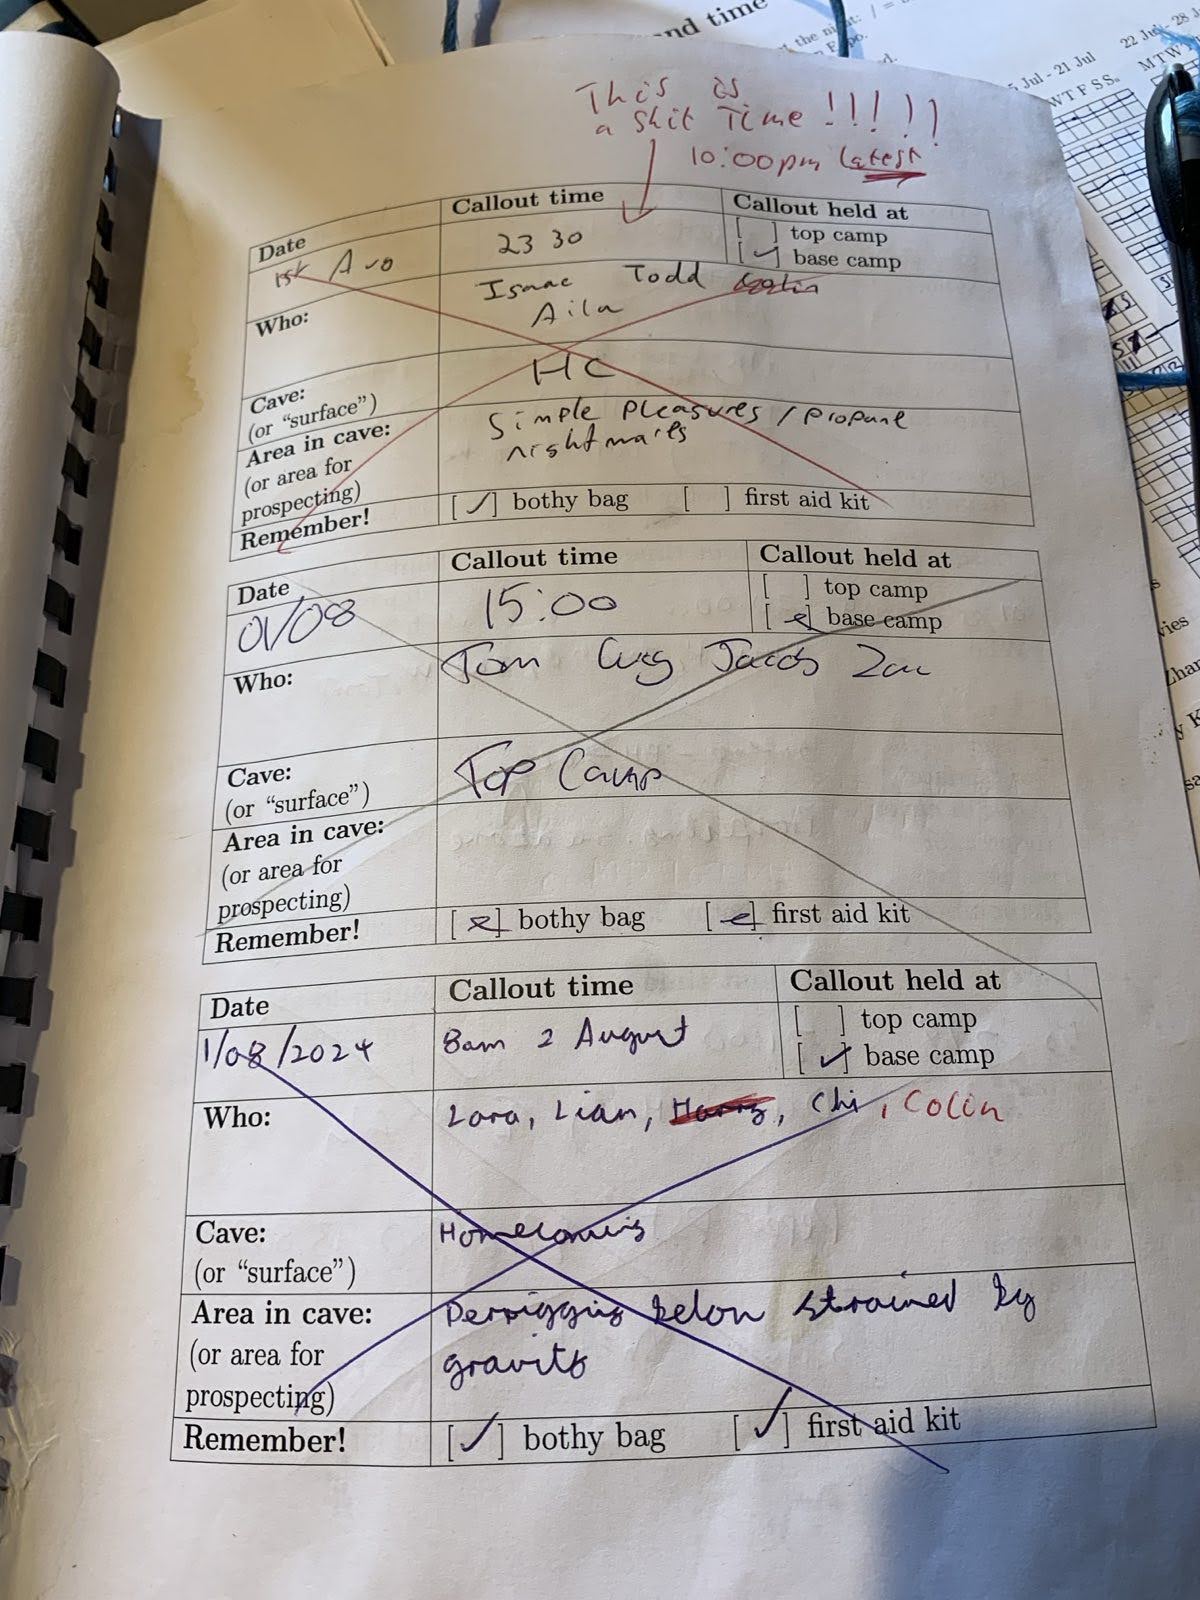 and time
the night: / =
5 Jul - 21 Jul
22 Jul - 28 J
W T F S S
M T W
This is
a shit Time !!!!!
10:00pm latest
Date
Callout time
Callout held at
1st Aug
23 30
[ ] top camp
[✓] base camp
Who:
Isaac Todd Colin
Aila
Cave:
(or “surface”)
HC
Area in cave:
(or area for
prospecting)
Simple Pleasures / propane
nightmares
Remember!
[✓] bothy bag [ ] first aid kit
Date
Callout time
Callout held at
01/08
15:00
[ ] top camp
[ ] base camp
Who:
Tom Jacob Zac
Cave:
(or “surface”)
Top Camp
Area in cave:
(or area for
prospecting)
Remember!
[ ] bothy bag [ ] first aid kit
Date
Callout time
Callout held at
1/08/2024
8am 2 August
[ ] top camp
[✓] base camp
Who:
Lara, Lian, Harry, Chi, Colin
Cave:
(or “surface”)
Homecoming
Area in cave:
(or area for
prospecting)
Derigging below strained by
gravity
Remember!
[✓] bothy bag [✓] first aid kit